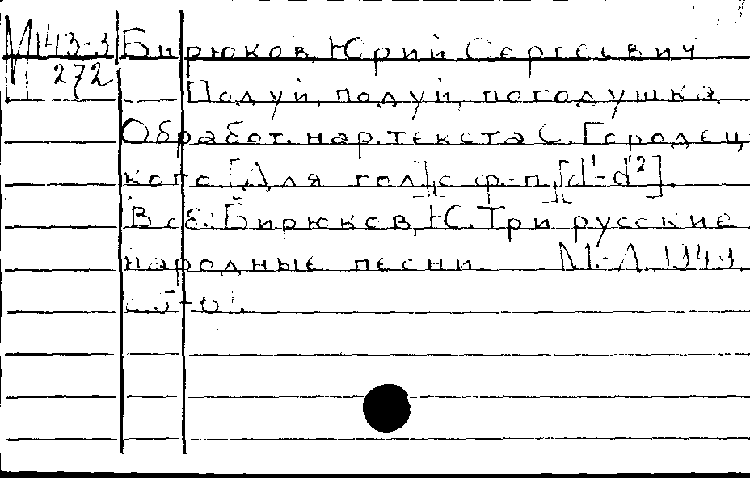 М143-3 Бирюков, Юрий Сергеевич
272 Подуй, подуй, погодушка
Обработ. нар. текста С. Городец
кого. [Для гол.] с ф.-п. [d¹-d²].
В сб.: Бирюков, Ю. Три русские
народные песни М.-Л. 1943